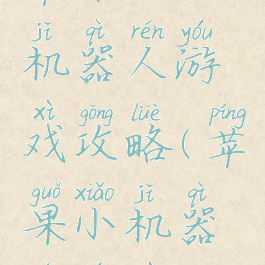 jī qì rén yóu
机器人游
xì gōng lüè píng
戏攻略(苹
guǒ xiǎo jī qì
果小机器